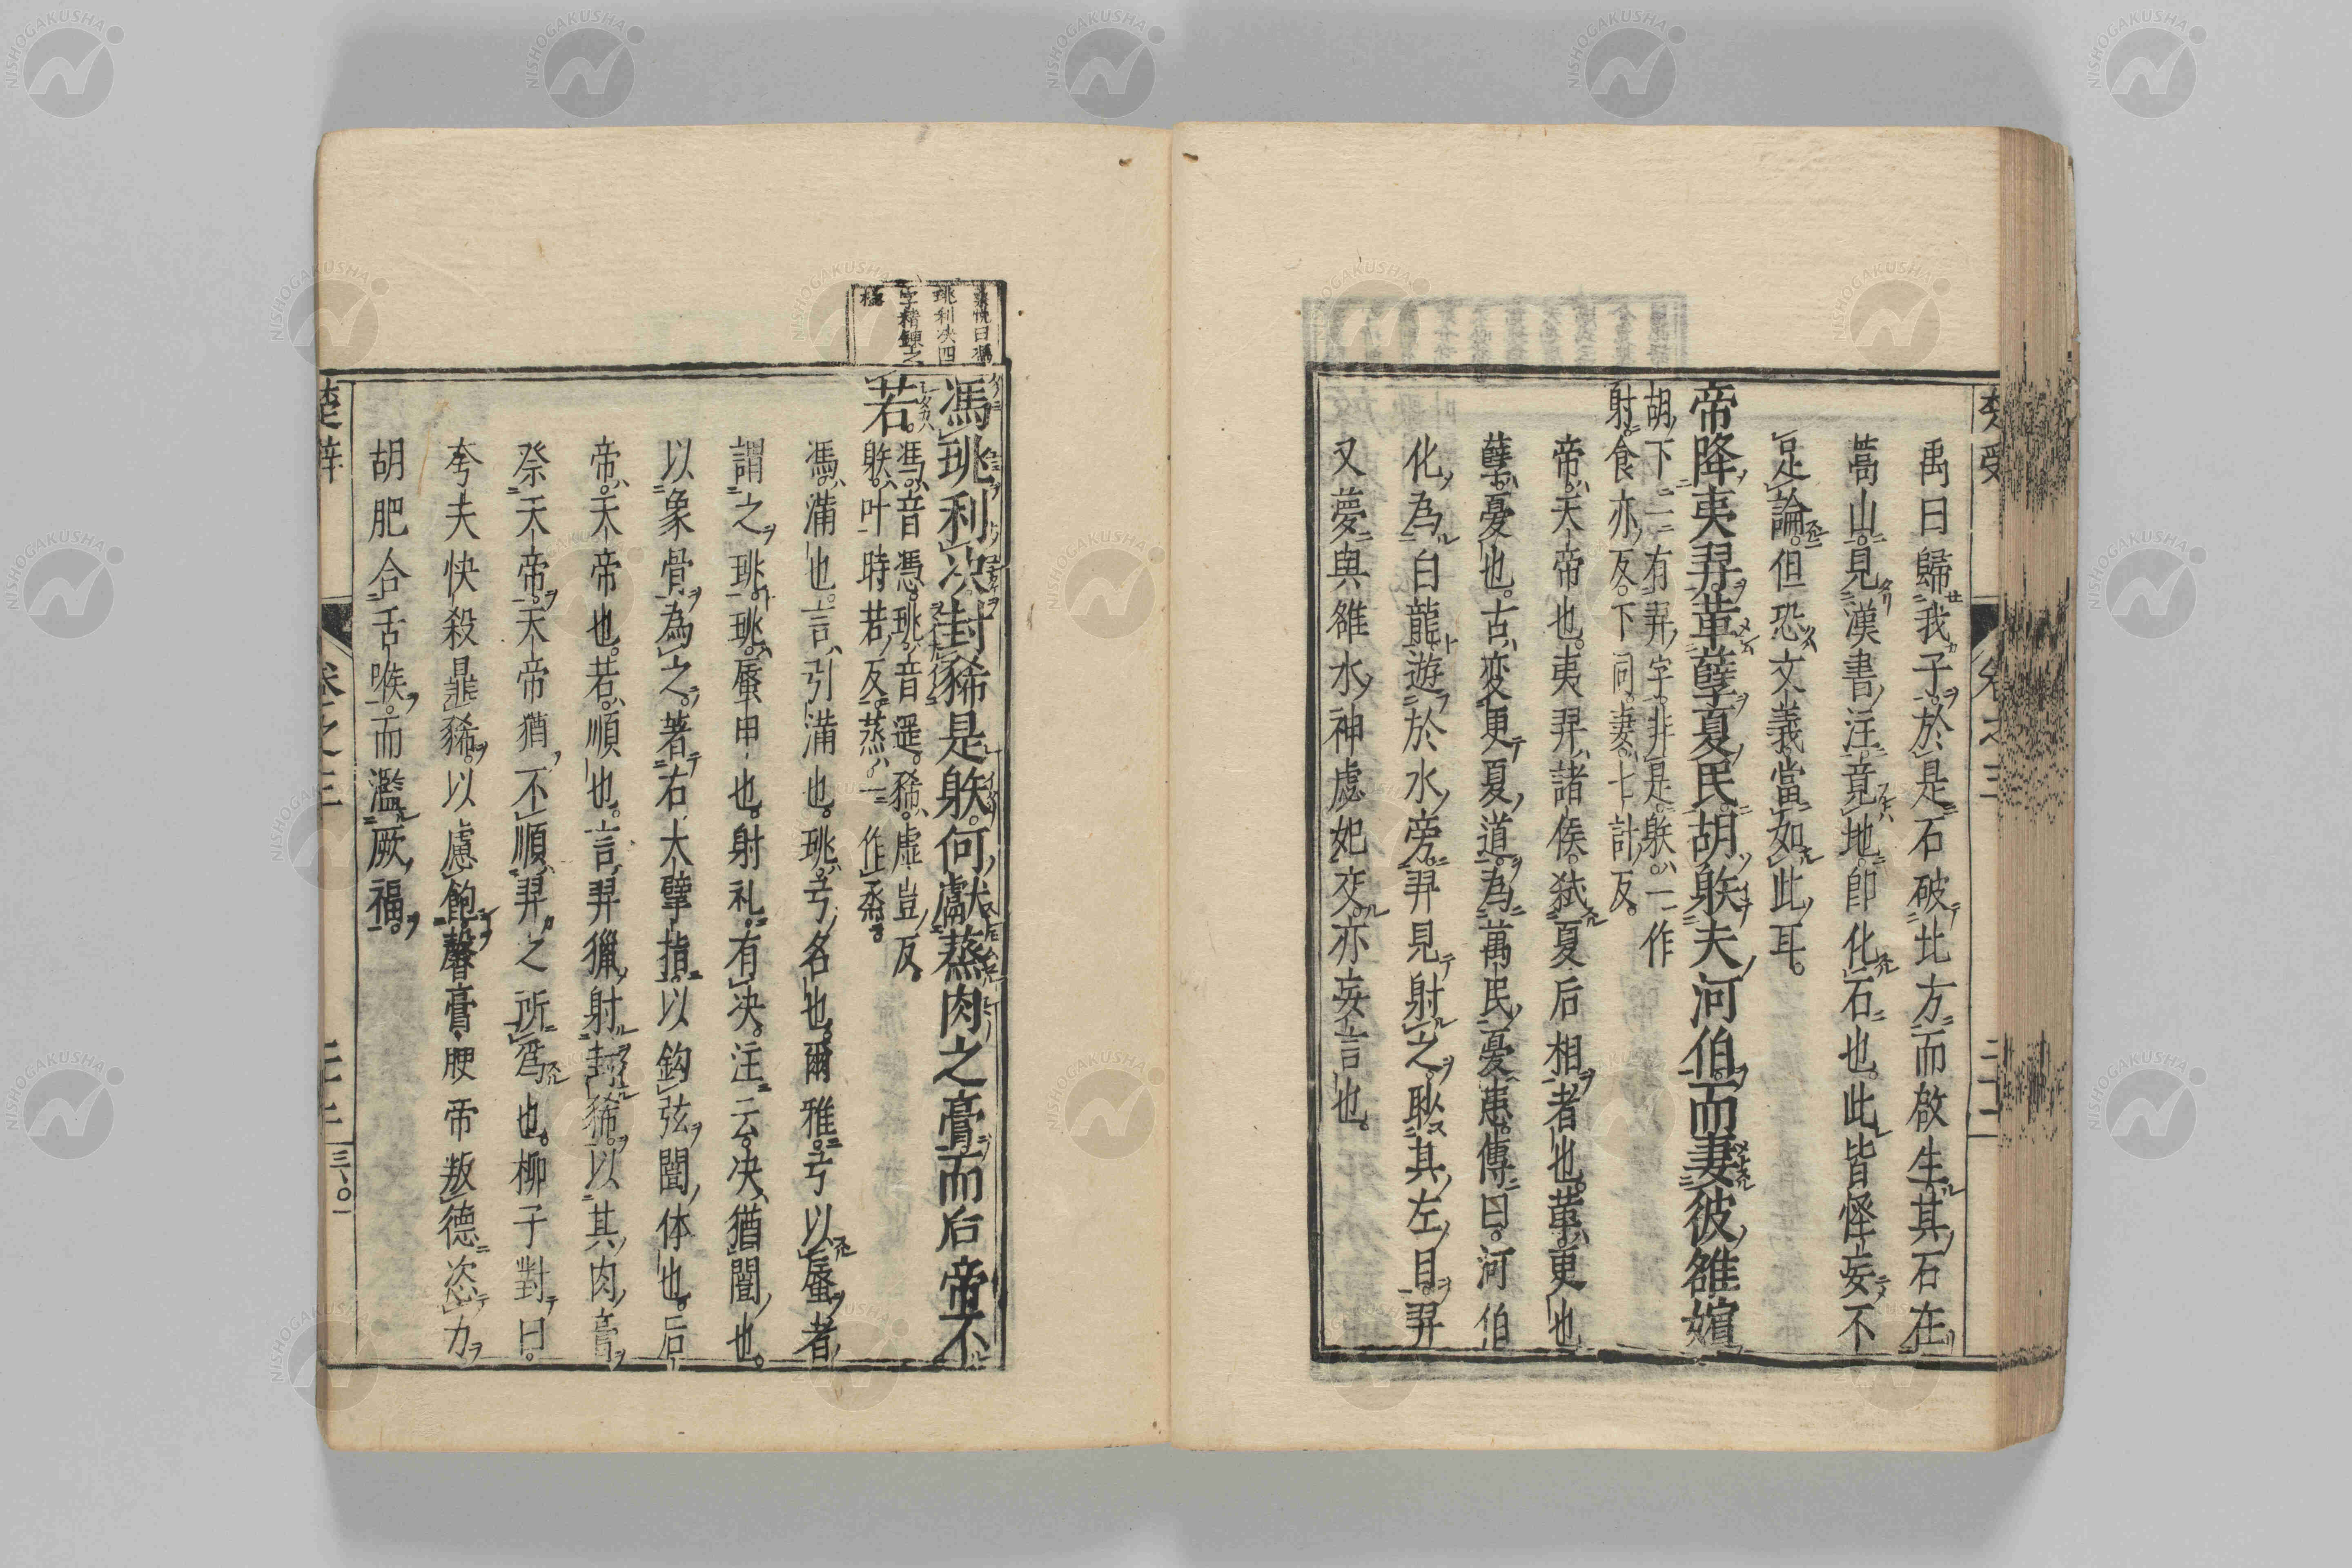 禹曰歸我子於是石破北方而啓生其石在
蒿山見漢書注竟地即化石也此皆怪妄不
足論但恐文義當如此耳
帝降夷羿革孽夏民胡䠶夫河伯而妻彼雒嬪
胡下一有羿字非是䠶一作
射食亦反下同妻七計反
帝天帝也夷羿諸侯弑夏后相者也革更也
孽憂也古変更夏道為萬民憂患傳曰河伯
化為白龍遊於水旁羿見射之眇其左目羿
又夢與雒水神虙妃交亦妄言也
楚辞
卷之三
馮珧利决封豨是䠶何獻蒸肉之膏而后帝不
若
馮音憑珧音遥豨虚豈反
䠶叶時若反蒸一作烝
馮滿也言引滿也珧弓名也爾雅弓以蜃者
謂之珧珧蜃甲也射礼有决注云决猶闓也
以象骨為之著右大擘指以鈎弦闓体也后
帝天帝也若順也言羿獵射封豨以其肉膏
祭天帝天帝猶不順羿之所為也柳子對曰
夸夫快殺鼎豨以慮飽馨膏腴帝叛德恣力
胡肥合舌喉而濫厥福
珧利决四
字精錬之
極